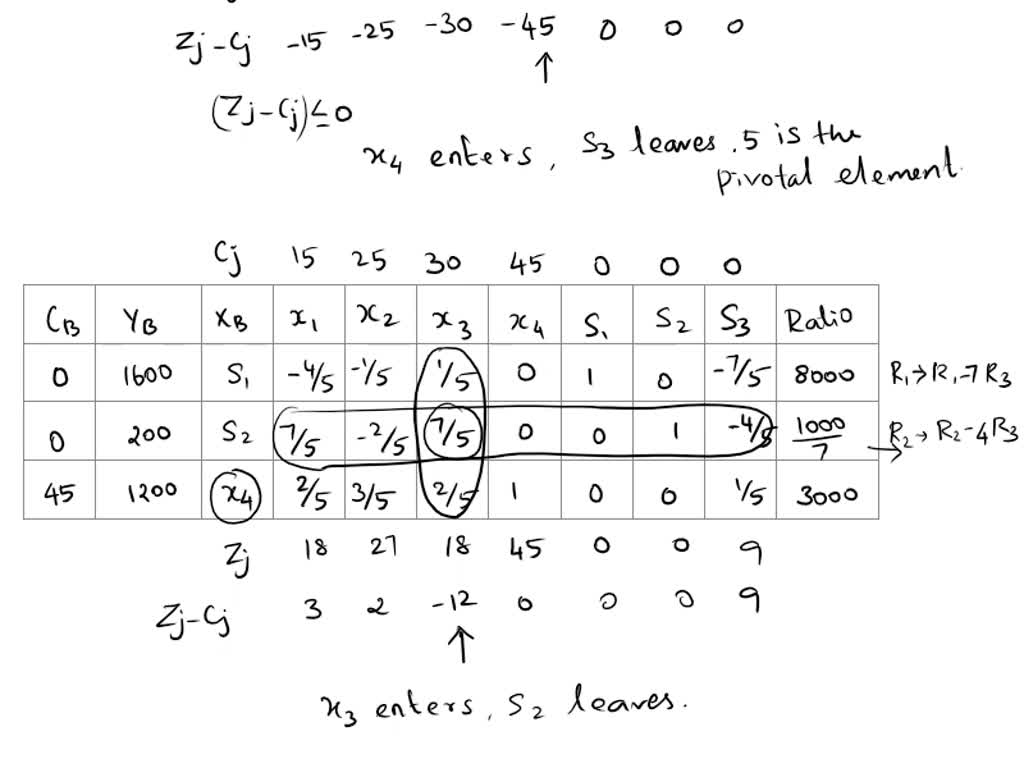 Zj-Cj -15 -25 -30 -45 0 0 0
↑
(Zj-Cj)≤0
x4 enters, S3 leaves. 5 is the
pivotal element.
Cj 15 25 30 45 0 0 0
CB YB XB x1 x2 x3 x4 S1 S2 S3 Ratio
0 1600 S1 -4/5 -1/5 1/5 0 1 0 -7/5 8000 R1→R1-7R3
0 200 S2 7/5 -2/5 7/5 0 0 1 -4/5 1000/7 → R2→R2-4R3
45 1200 x4 2/5 3/5 2/5 1 0 0 1/5 3000
Zj 18 27 18 45 0 0 9
Zj-Cj 3 2 -12 0 0 0 9
↑
x3 enters, S2 leaves.